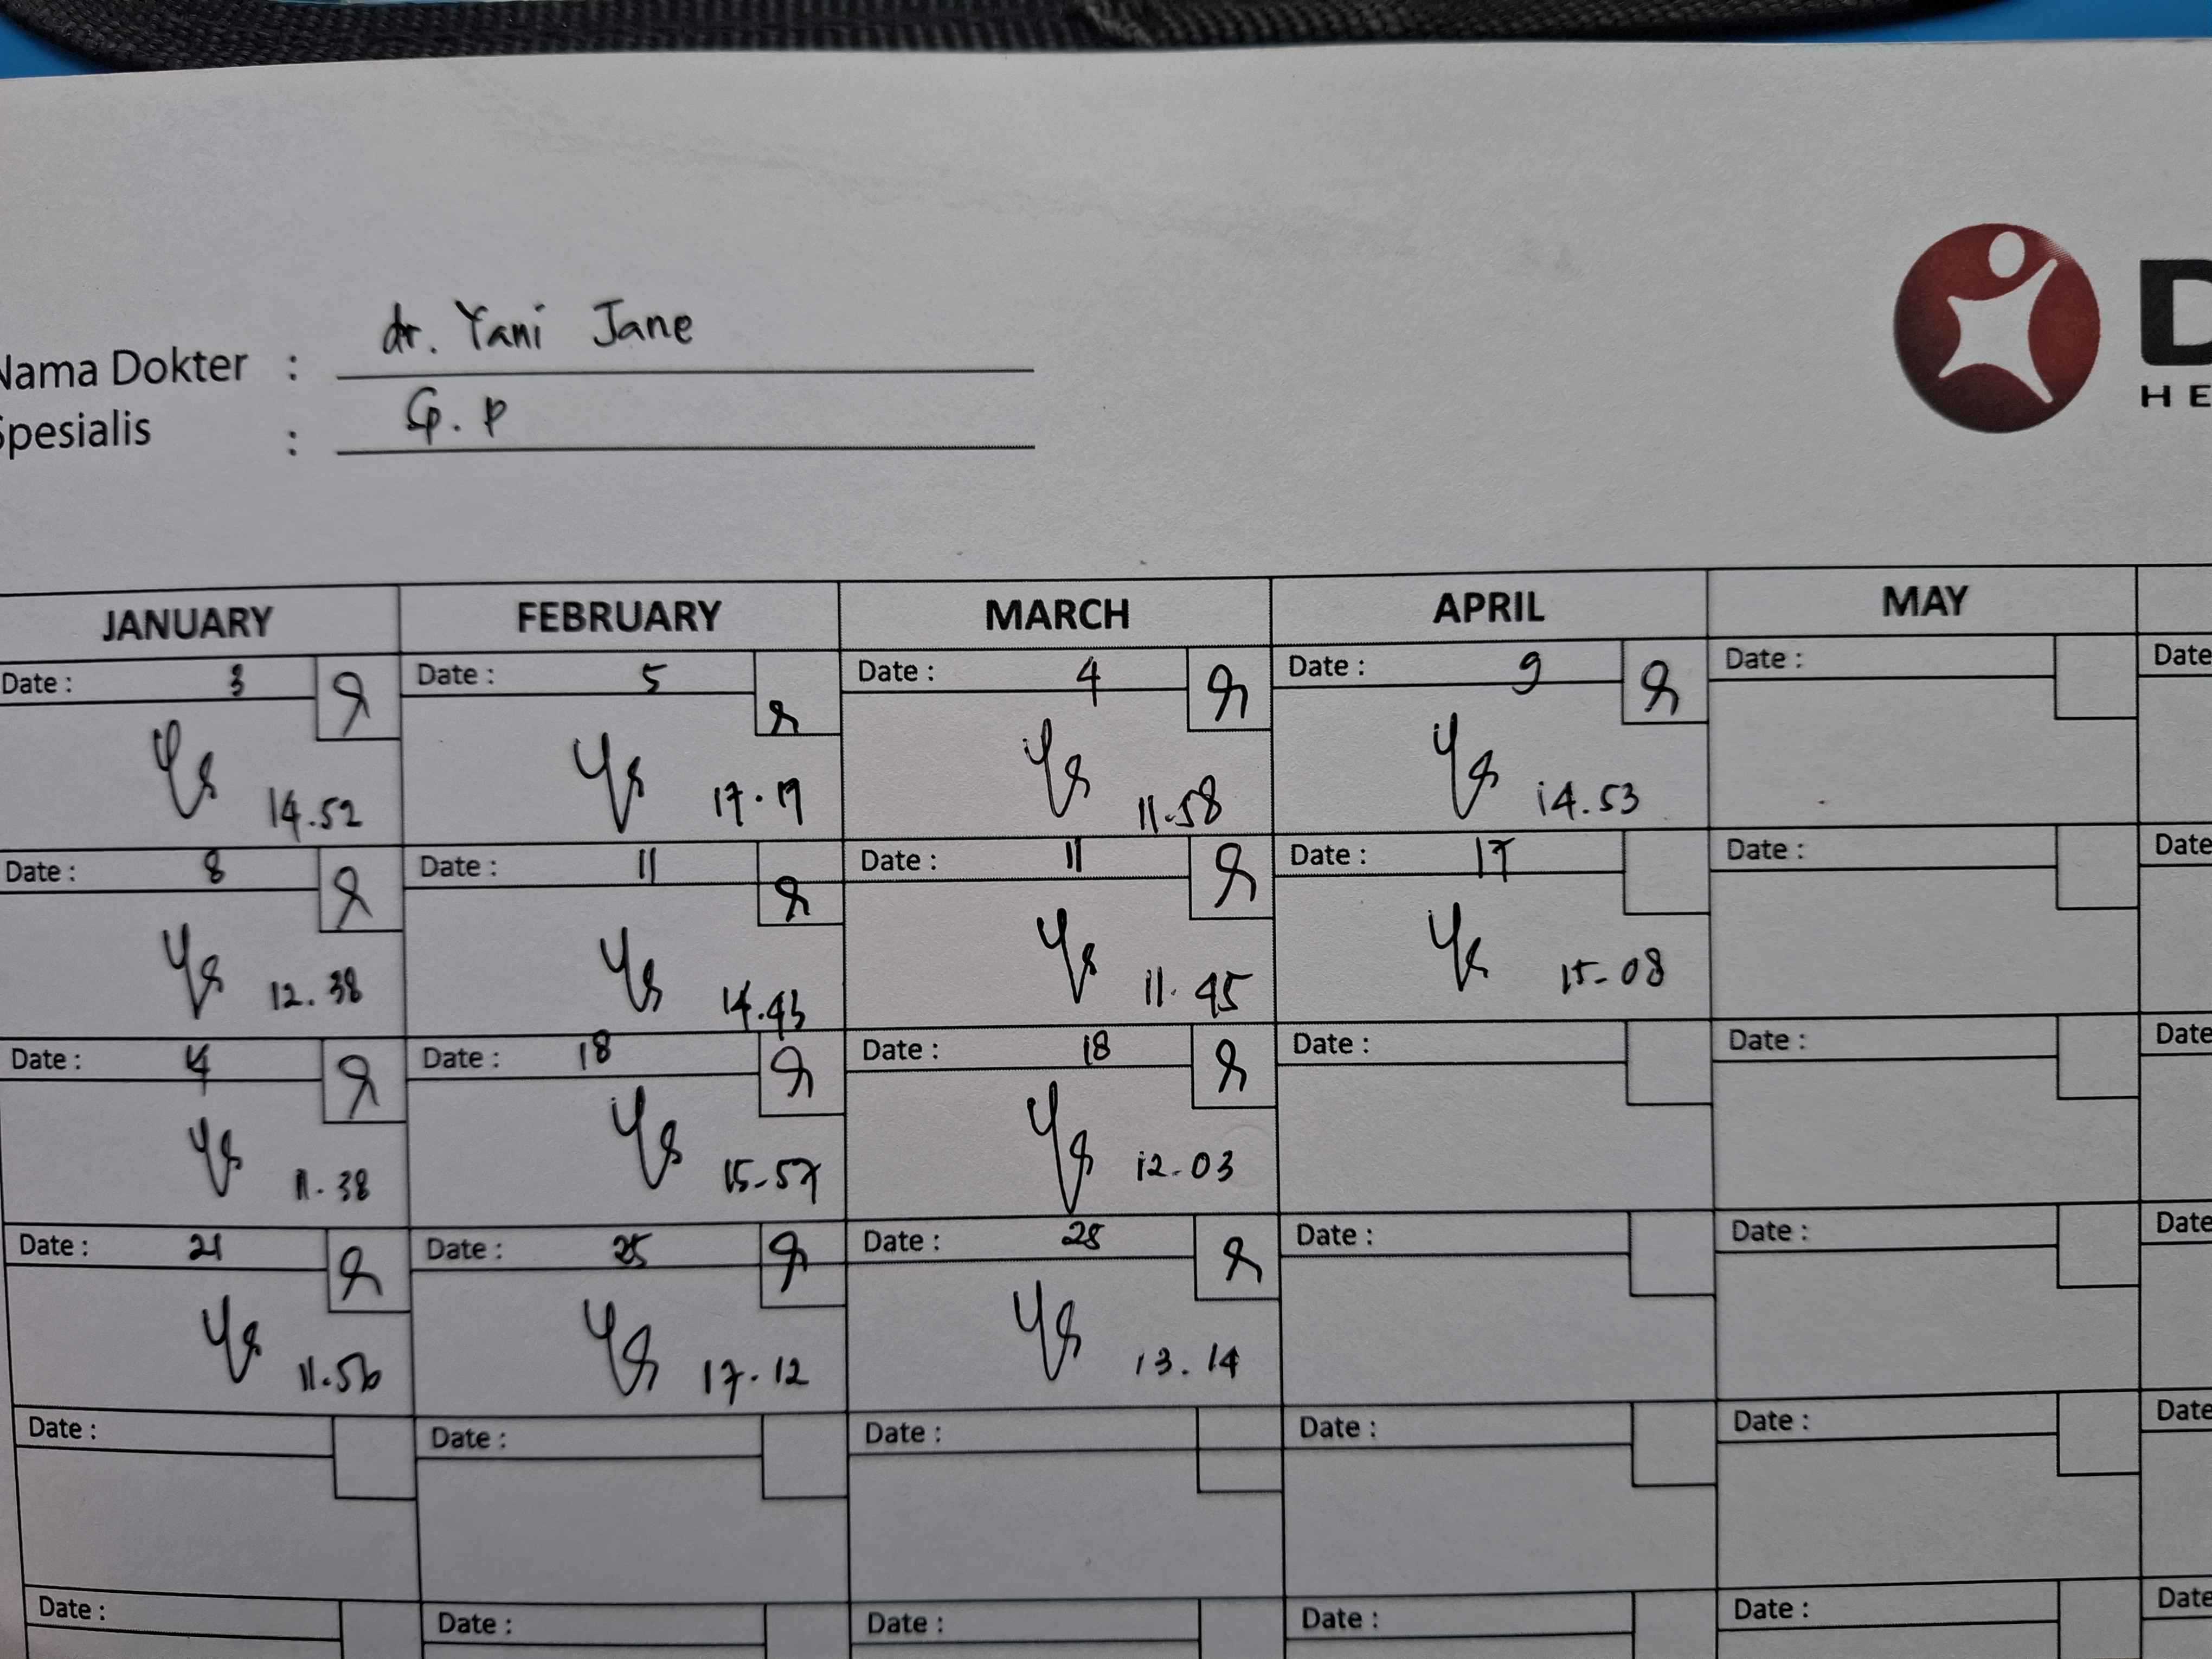 dr. Yani Jane
Nama Dokter :
Sp. P
Spesialis :
D
HE
JANUARY FEBRUARY MARCH APRIL MAY
Date : 3 Date : 5 Date : 4 Date : 9 Date : Date
14.52 17.19 11.58 14.53
Date : 8 Date : 11 Date : 11 Date : 17 Date : Date
12.38 14.43 11.45 15-08
Date : Date : 18 Date : 18 Date : Date : Date
11.38 15-57 12-03
Date : 21 Date : 25 Date : 28 Date : Date : Date
11.56 17.12 13.14
Date : Date : Date : Date : Date : Date
Date : Date : Date : Date : Date : Date